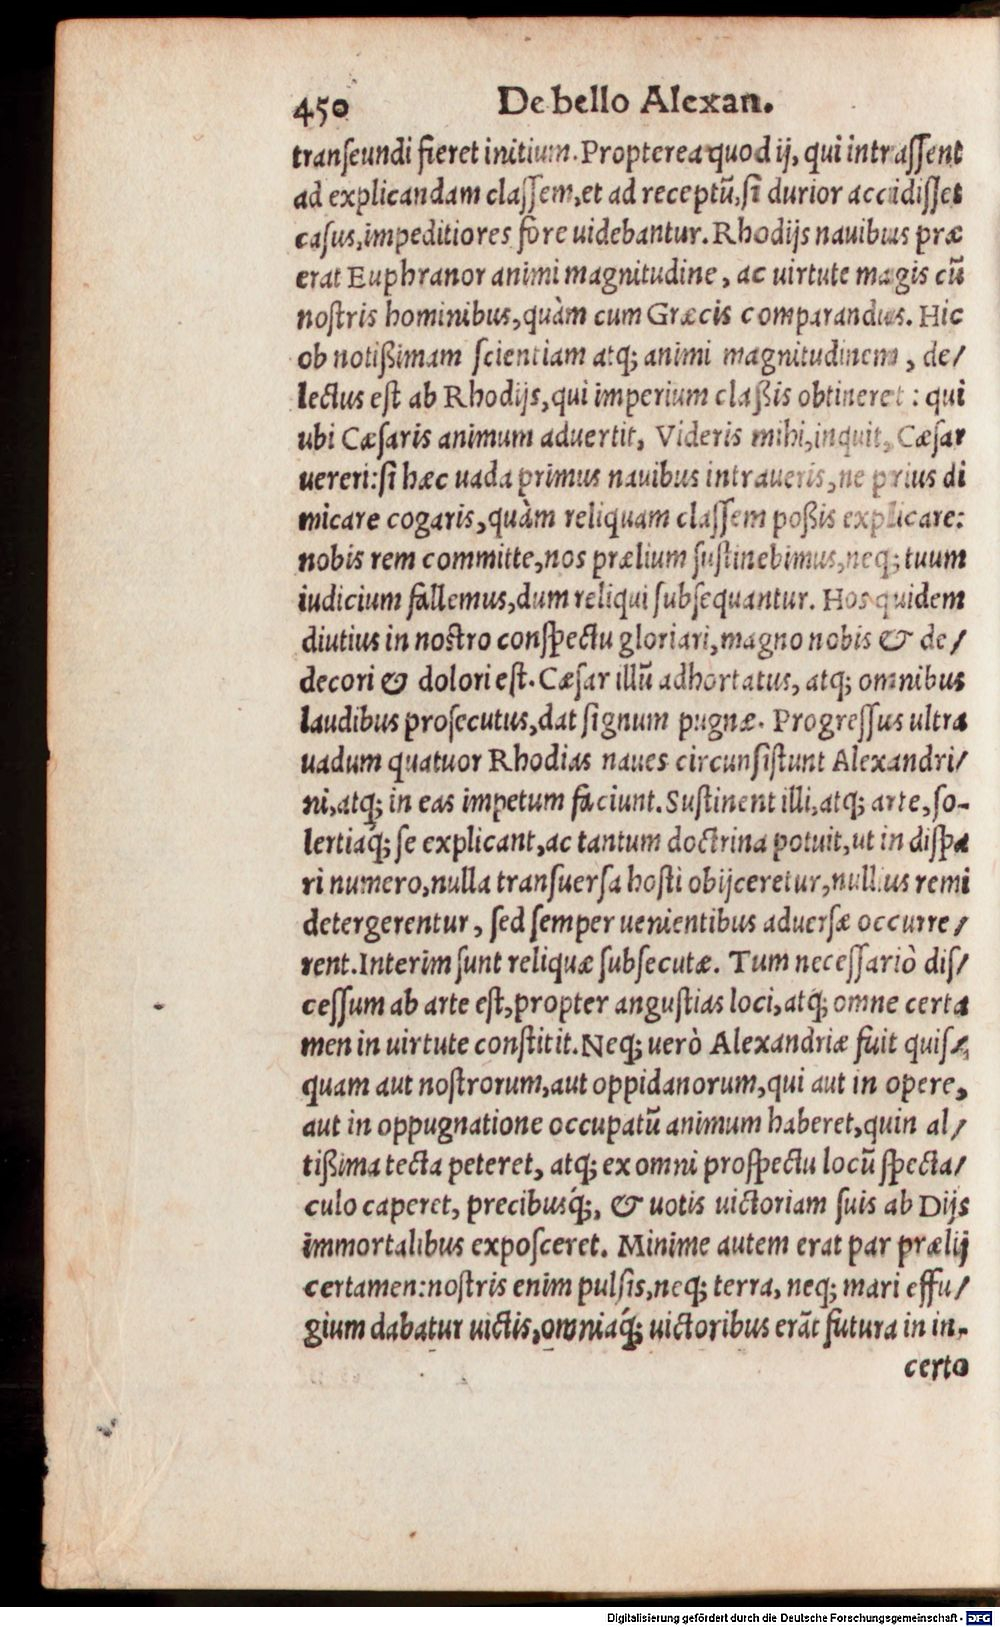 450 De bello Alexan.
tranſeundi fieret initium. Propterea quod ij, qui intraſſent
ad explicandam claſſem, et ad receptū, ſi durior accidiſſet
caſus, impeditiores fore uidebantur. Rhodijs nauibus præ
erat Euphranor animi magnitudine, ac uirtute magis cū
noſtris hominibus, quàm cum Græcis comparandus. Hic
ob notißimam ſcientiam atq; animi magnitudinem, de/
lectus eſt ab Rhodijs, qui imperium claßis obtineret: qui
ubi Cæſaris animum aduertit, Videris mihi, inquit, Cæſar
uereri: ſi hæc uada primus nauibus intraueris, ne prius di
micare cogaris, quàm reliquam claſſem poßis explicare:
nobis rem committe, nos prælium ſuſtinebimus, neq; tuum
iudicium fallemus, dum reliqui ſubſequantur. Hos quidem
diutius in noſtro conſpectu gloriari, magno nobis & de/
decori & dolori eſt. Cæſar illū adhortatus, atq; omnibus
laudibus proſecutus, dat ſignum pugnæ. Progreſſus ultra
uadum quatuor Rhodias naues circunſiſtunt Alexandri/
ni, atq; in eas impetum faciunt. Suſtinent illi, atq; arte, ſo-
lertiaq́; ſe explicant, ac tantum doctrina potuit, ut in diſpa
ri numero, nulla tranſuerſa hoſti obijceretur, nullius remi
detergerentur, ſed ſemper uenientibus aduerſæ occurre/
rent. Interim ſunt reliquæ ſubſecutæ. Tum neceſſariò diſ/
ceſſum ab arte eſt, propter anguſtias loci, atq; omne certa
men in uirtute conſtitit. Neq; uerò Alexandriæ fuit quiſq;
quam aut noſtrorum, aut oppidanorum, qui aut in opere,
aut in oppugnatione occupatū animum haberet, quin al/
tißima tecta peteret, atq; ex omni proſpectu locū ſpecta/
culo caperet, precibusq́;, & uotis uictoriam ſuis ab Dijs
immortalibus expoſceret. Minime autem erat par prælij
certamen: noſtris enim pulſis, neq; terra, neq; mari effu/
gium dabatur uictis, omniaq́; uictoribus erāt futura in in-
certo
Digitalisierung gefördert durch die Deutsche Forschungsgemeinschaft - DFG